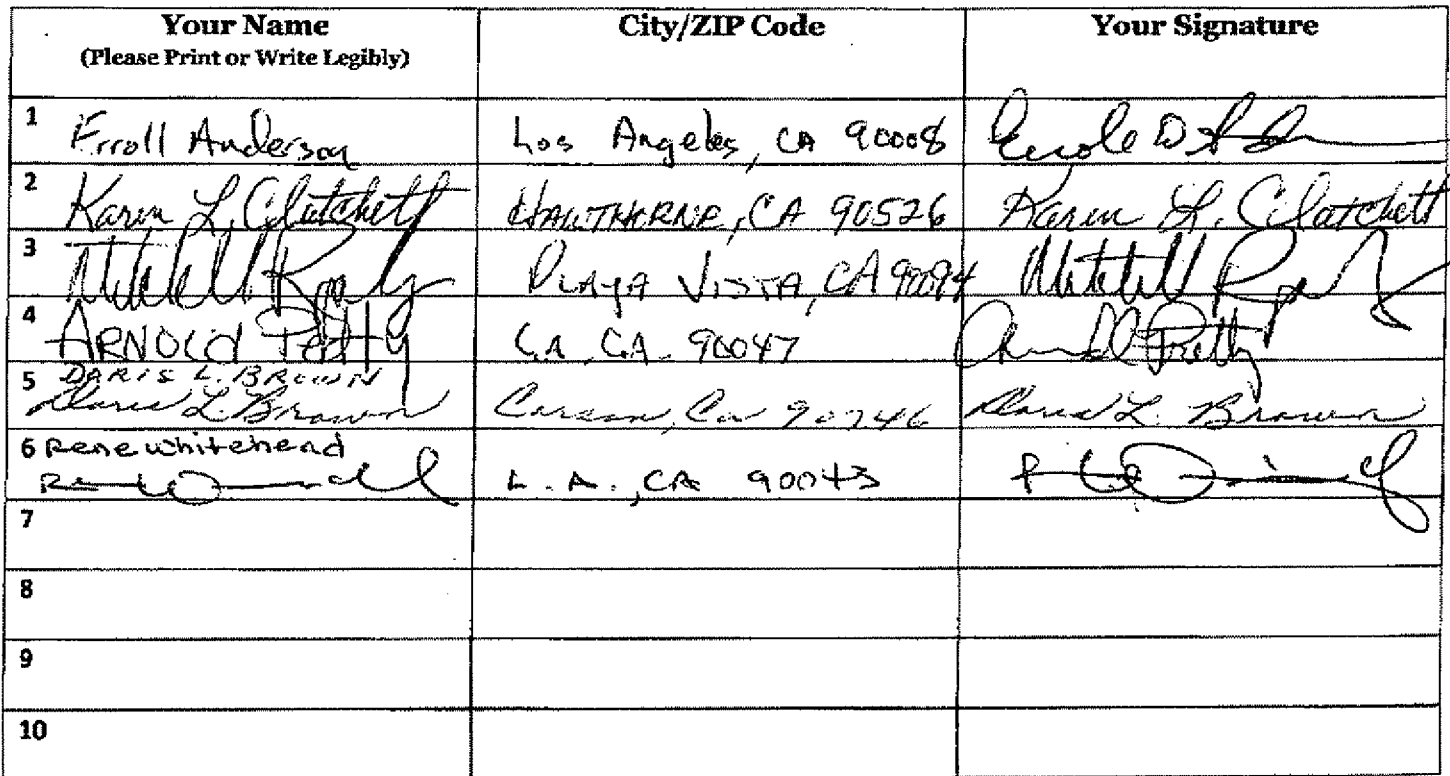 Your Name City/ZIP Code Your Signature
(Please Print or Write Legibly)
1 Erroll Anderson Los Angeles, CA 90008
2 Karen L. Clatchett HAWTHORNE, CA 90526 Karen L. Clatchett
3 Mitchell PLAYA VISTA, CA 90094 Mitchell
4 ARNOLD Petty LA, CA. 90047 Arnold Petty
5 DARIS L. BROWN
Daris L. Brown Carson, Ca 90746 Daris L. Brown
6 Rene whitehead
L.A., CA 90043
7
8
9
10